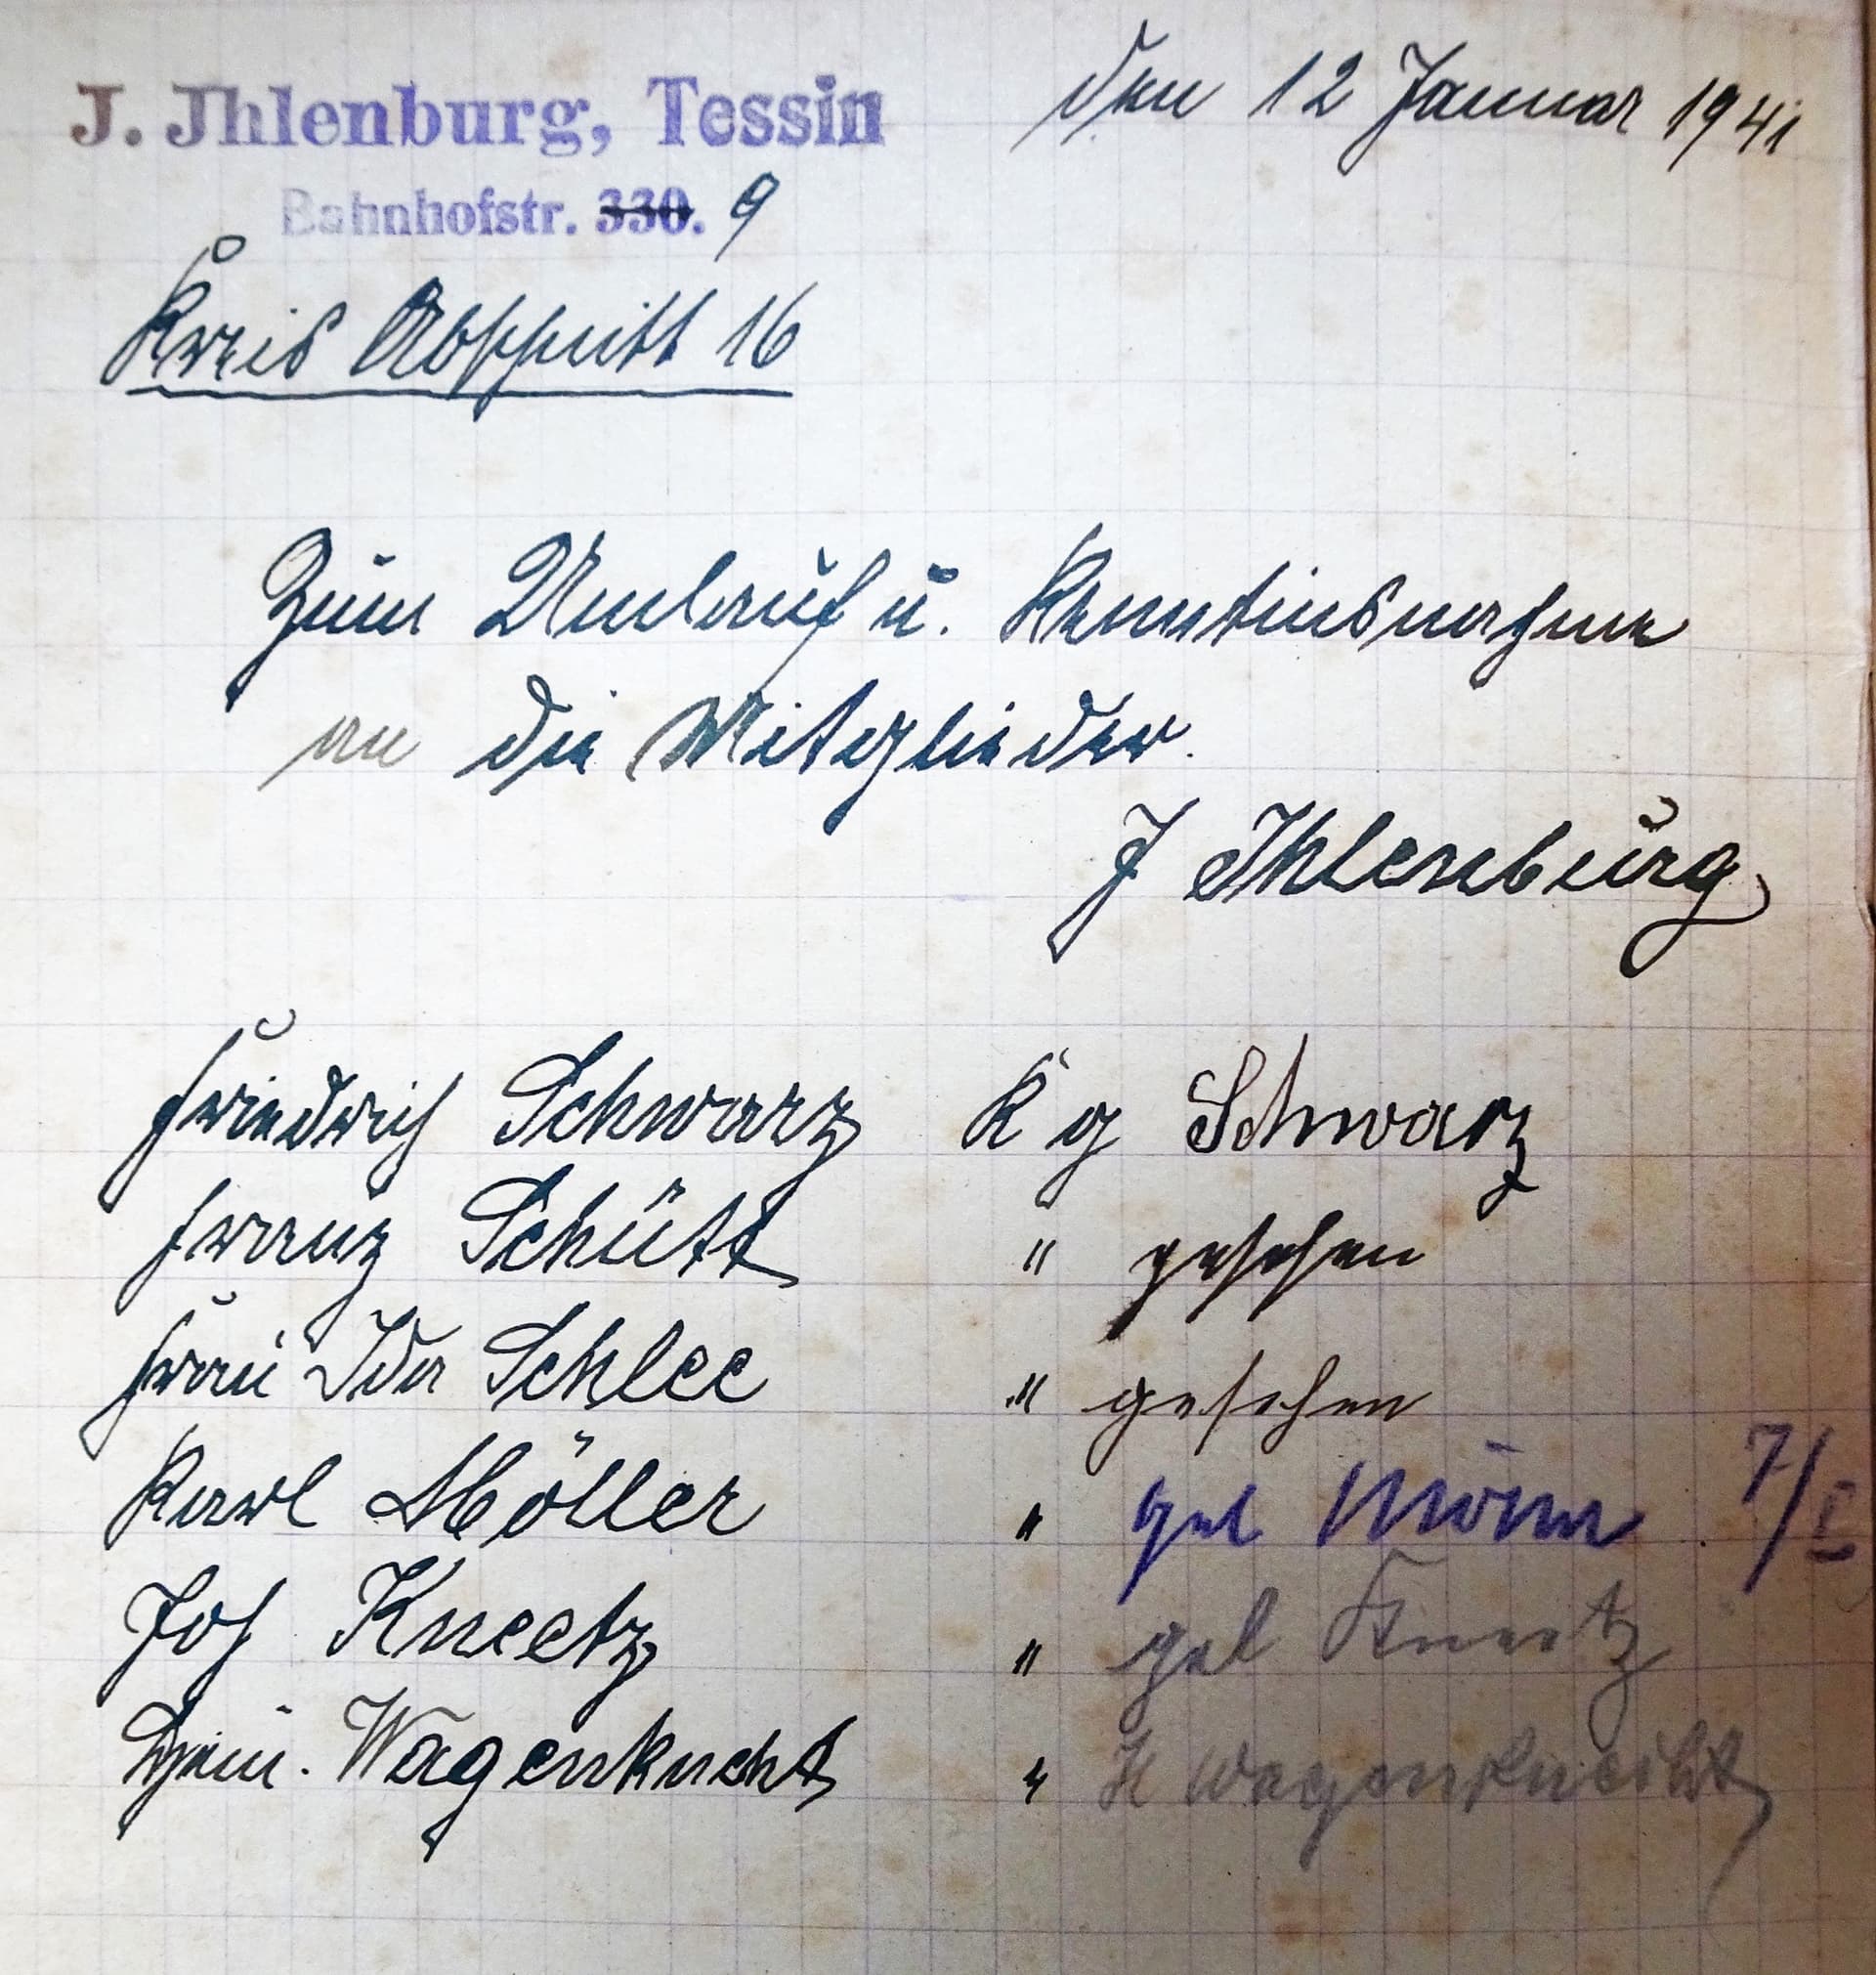 J. Jhlenburg, Tessin
den 12 Januar 1941
Bahnhofstr. 330. 9
Kreis Abschnitt 16
Zum Umlauf u. Kenntnisnahme
an die Mitglieder.
J Ihlenburg
Friedrich Schwarz K g Schwarz
Franz Schütt " gesehen
Frau Ida Schlee " gesehen
Karl Möller " gel 7/I
Joh Kneetz " gel Kneetz
Wagenknecht " H Wagenknecht